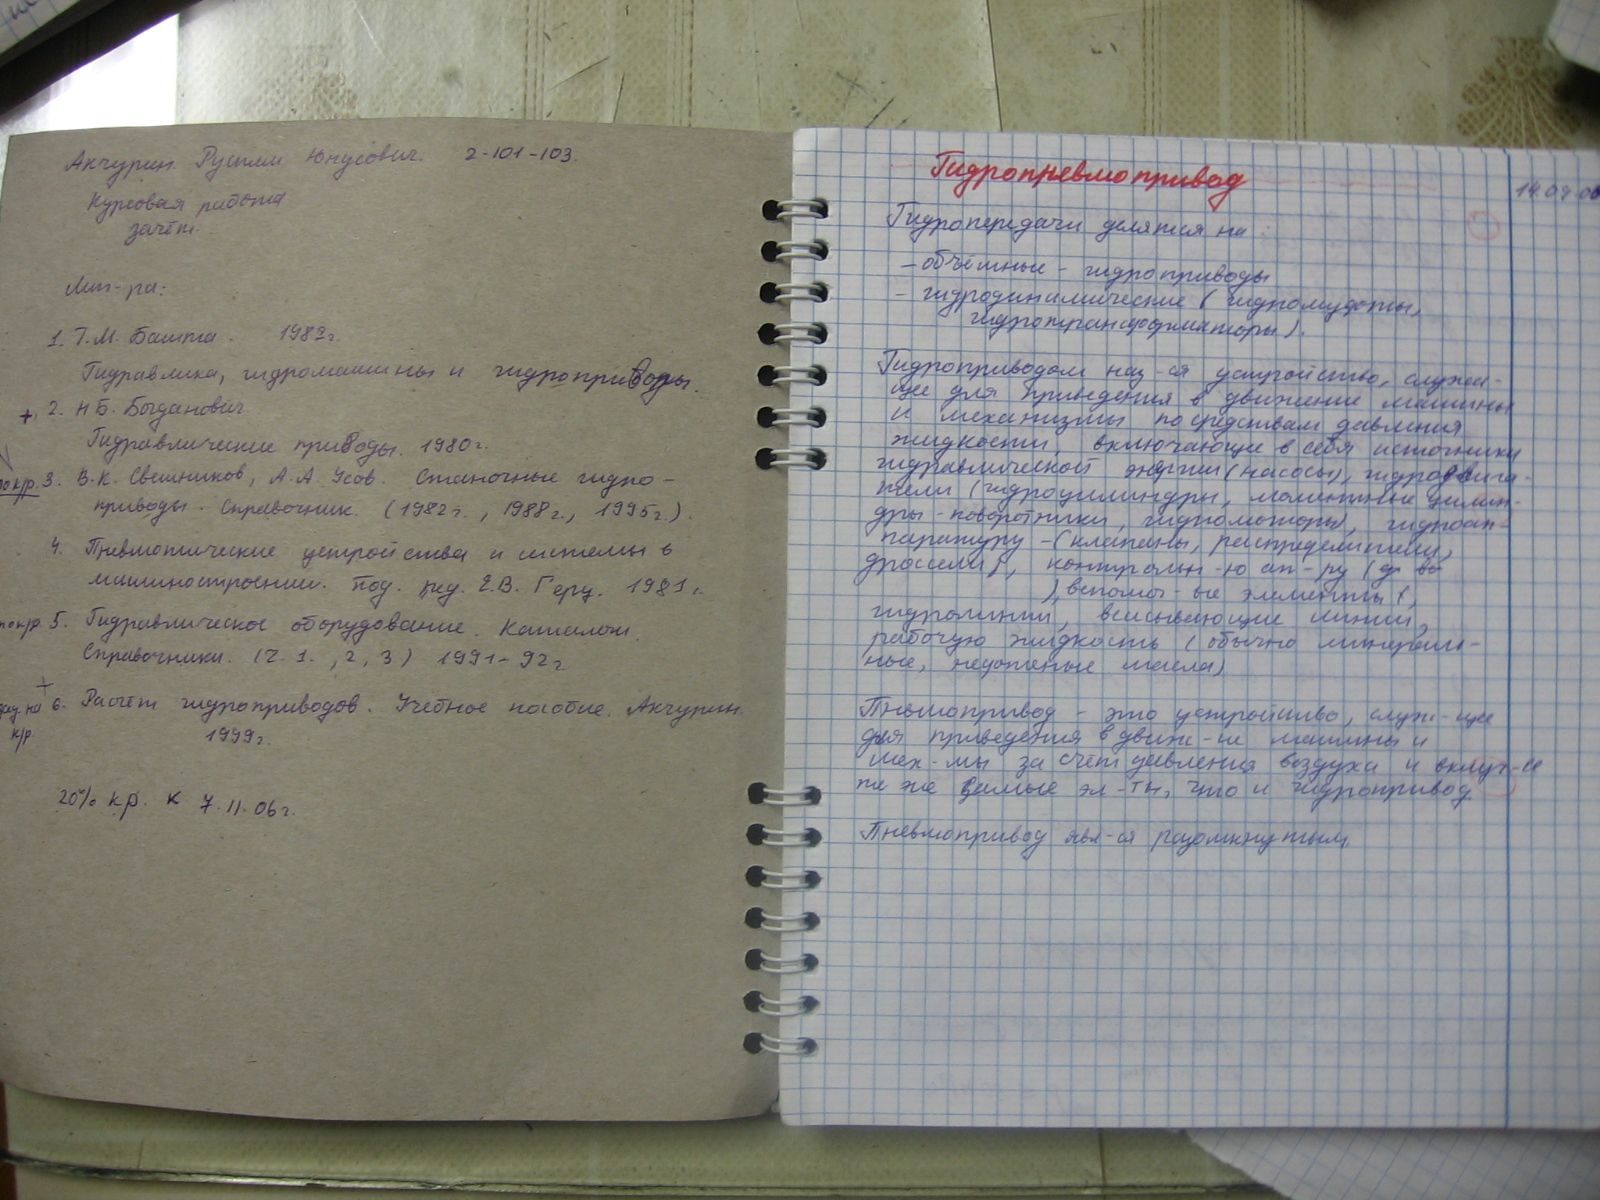 Акчурин Рустам Юнусович. 2-101-103.
Курсовая работа
зачёт.
Лит-ра:
1. Т.М. Башта. 1982г.
Гидравлика, гидромашины и гидроприводы.
+, 2. Н.Б. Богданович
Гидравлические приводы. 1980г.
по к/р. 3. В.К. Свешников, А.А. Усов. Станочные гидро-
приводы. Справочник. (1982г., 1988г., 1995г.).
4. Пневмотические устройства и системы в
машиностроении. Под. ред. Е.В. Герц. 1981г.
по к/р 5. Гидравлическое оборудование. Каталоги.
Справочники. (Ч. 1., 2, 3) 1991-92г
+ зад. на к/р. 6. Расчёт гидроприводов. Учебное пособие. Акчурин.
1999г.
20% кр. к 7.11.06г.
Гидропневмопривод
14.09.06
Гидропередачи делятся на:
- объёмные - гидроприводы
- гидродинамические (гидромуфты,
гидротрансформаторы).
Гидроприводом наз-ся устройство, служа-
щее для приведения в движение машины
и механизмы посредствам давления
жидкости, включающие в себя источники
гидравлической энергии (насосы), гидродвига-
тели (гидроцилиндры, моментные цилин-
дры - поворотники, гидромоторы), гидроап-
паратуру - (клапаны, распределители,
дроссели), контрольн-ю ап-ру (
), вспомог-ые элементы (,
гидролинии, всасывающие линии,
рабочую жидкость (обычно минераль-
ные, масла)
Пневмопривод - это устройство, служ-щее
для приведения в движ-ие машины и
мех-мы за счёт давления воздуха и включ-ие
те же самые эл-ты, что и гидропривод.
Пневмопривод явл-ся разомкнутым.